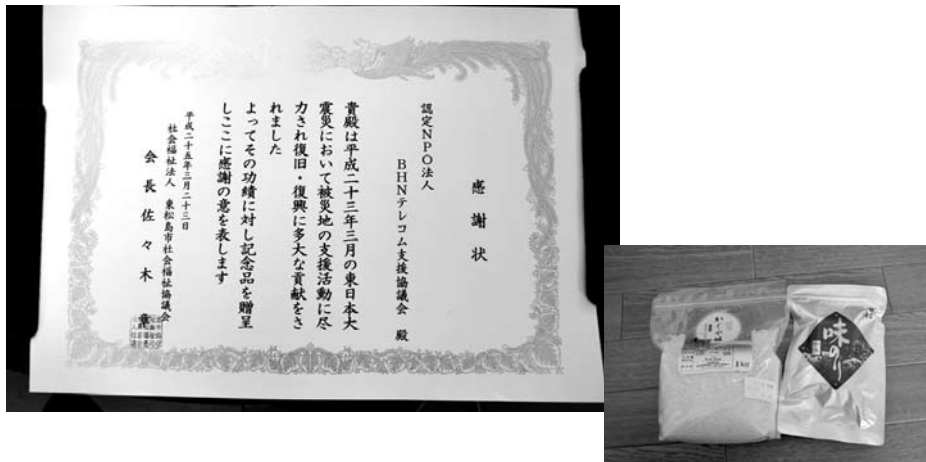 感謝状
認定NPO法人
BHNテレコム支援協議会 殿
貴殿は平成二十三年三月の東日本大
震災において被災地の支援活動に尽
力され復旧・復興に多大な貢献をさ
れました
よってその功績に対し記念品を贈呈
しここに感謝の意を表します
平成二十五年三月二十三日
社会福祉法人 東松島市社会福祉協議会
会長 佐々木 章
味のり
1kg